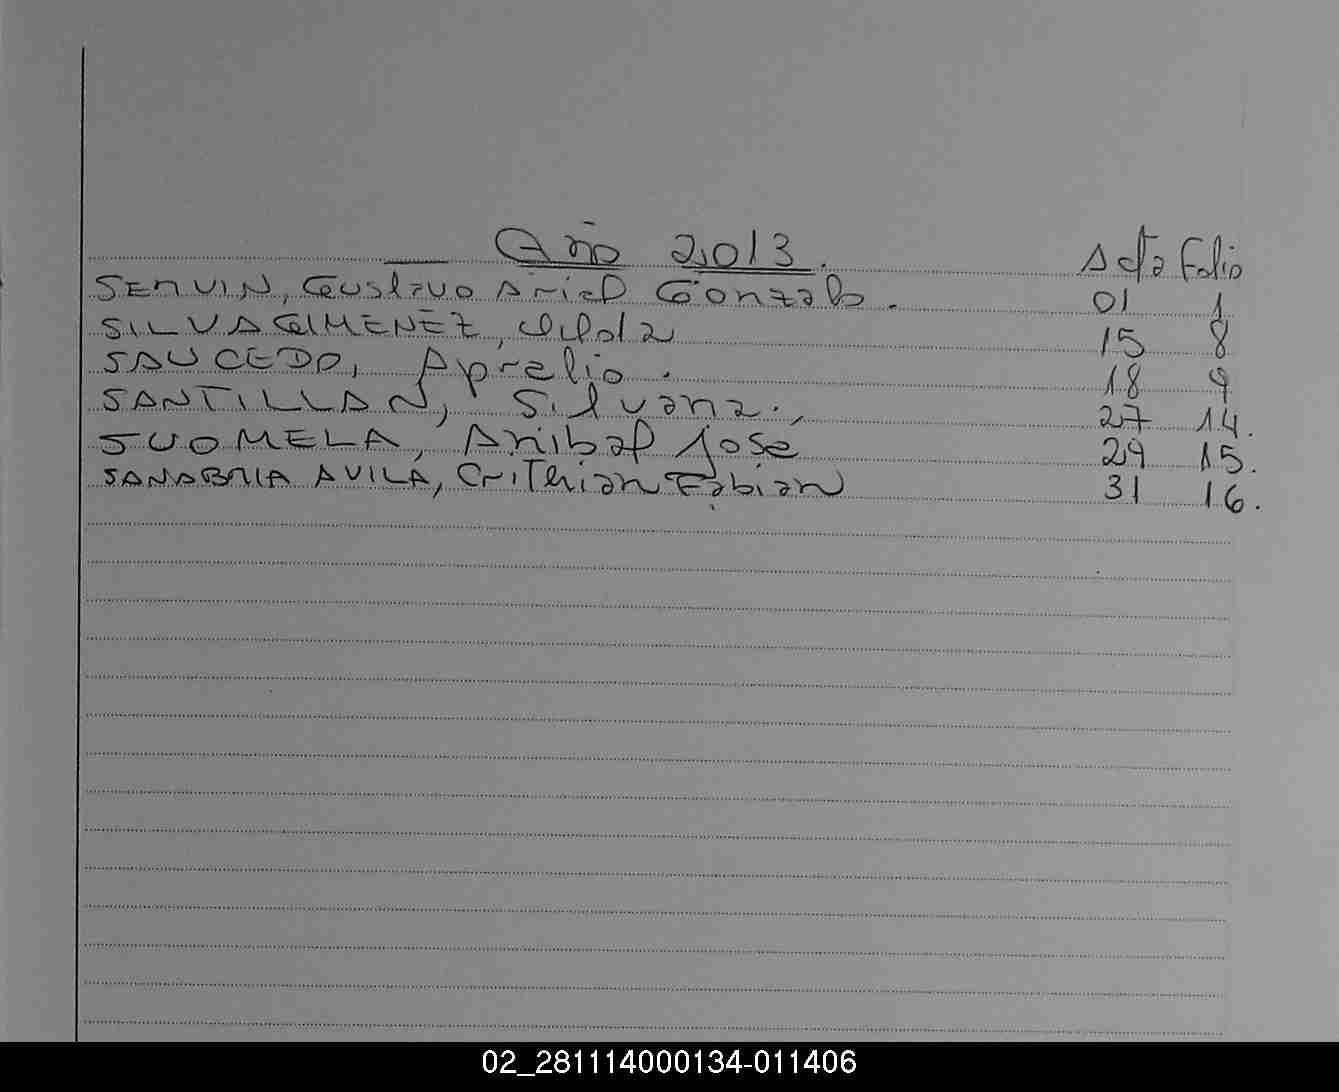 Año 2013. Acta Folio
SERVIN, Gustavo Ariel Gonzalo. 01 1
SILVA GIMENEZ, 15 8
SAUCEDO, Aprelio. 18 9
SANTILLAN, Silvana. 27 14.
SUOMELA, Anibal José 29 15.
SANABRIA AVILA, Crithian Fabian 31 16.
02_281114000134-011406